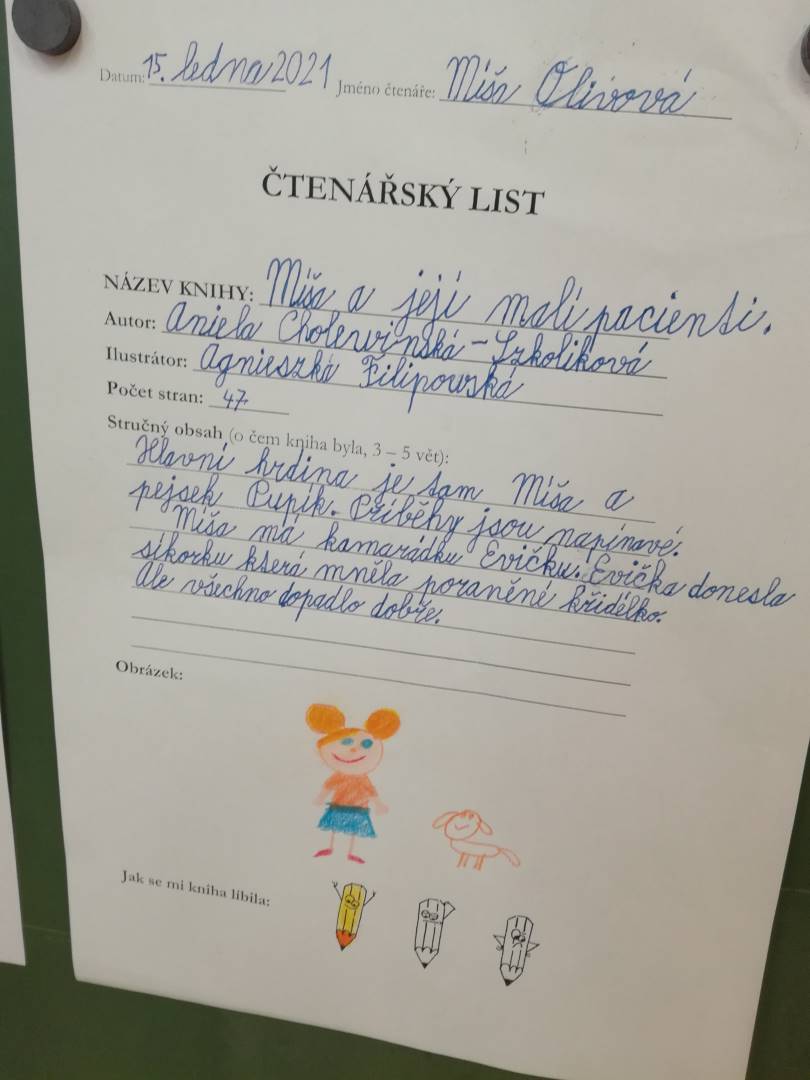 Datum: 15. ledna 2021 Jméno čtenáře: Míša Olivová
ČTENÁŘSKÝ LIST
NÁZEV KNIHY: Míša a její malí pacienti.
Autor: Aniela Cholewinská - Szkoliková
Ilustrátor: Agnieszká Filipowská
Počet stran: 47
Stručný obsah (o čem kniha byla, 3 – 5 vět):
Hlavní hrdina je tam Míša a
pejsek Pupík. Příběhy jsou napínavé.
Míša má kamarádku Evičku. Evička donesla
síkorku která mněla poraněné křidélko.
Ale všechno dopadlo dobře.
Obrázek:
Jak se mi kniha líbila: